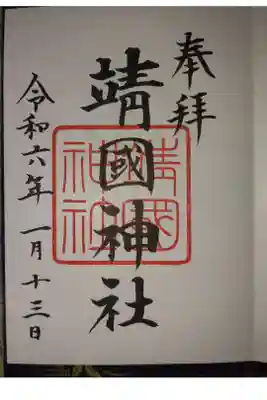 奉拜
靖國神社
令和六年一月十三日
靖國神社